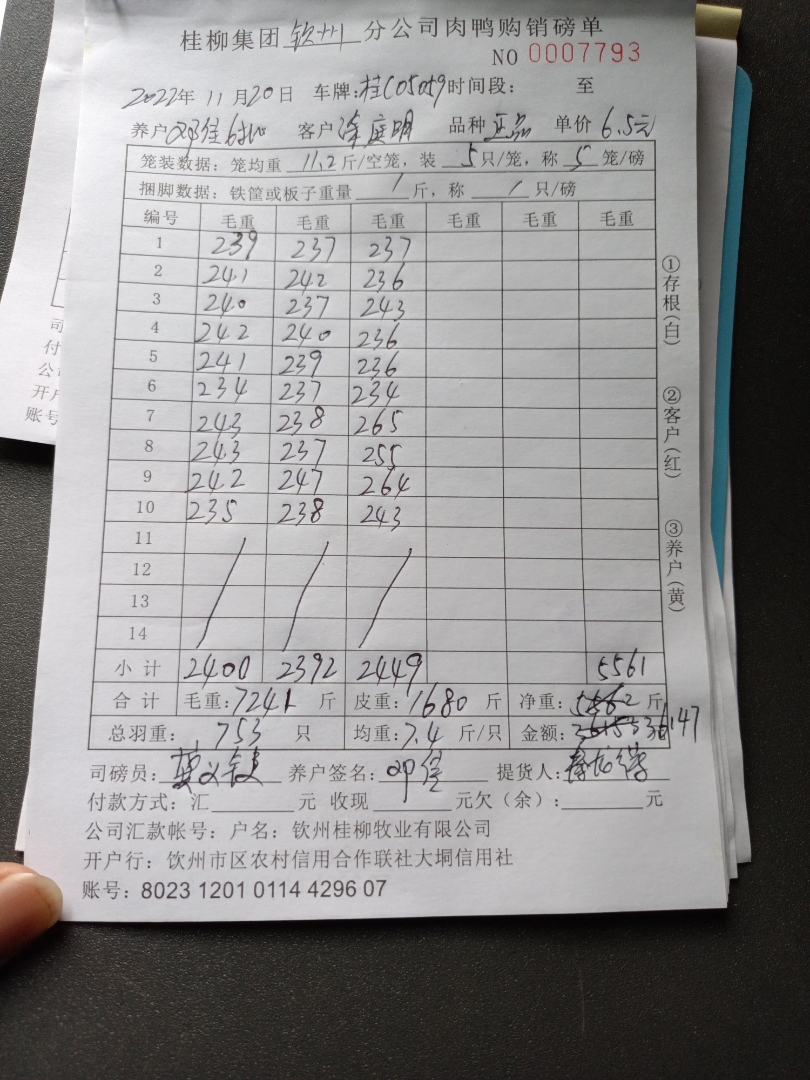 桂柳集团钦州分公司肉鸭购销磅单
NO 0007793
2022年11月20日 车牌:桂C05059时间段: 至
养户邓信6批 客户涂庭明 品种正品 单价6.5元
笼装数据: 笼均重 11.2斤/空笼, 装 5只/笼, 称5笼/磅
捆脚数据: 铁筐或板子重量 / 斤, 称 / 只/磅
编号 毛重 毛重 毛重 毛重 毛重 毛重
1 239 237 237
2 241 242 236
3 240 237 243
4 242 240 236
5 241 239 236
6 234 237 234
7 243 238 265
8 243 237 255
9 242 247 264
10 235 238 243
11
12
13
14
小计 2400 2392 2449 5561
合计 毛重:7241斤 皮重:1680斤 净重: 斤
总羽重: 753 只 均重:7.4斤/只 金额: 36147
司磅员: 养户签名:邓信 提货人:
付款方式: 汇 元 收现 元欠(余): 元
公司汇款帐号: 户名: 钦州桂柳牧业有限公司
开户行: 饮州市区农村信用合作联社大垌信用社
账号: 8023 1201 0114 4296 07
①存根(白)
②客户(红)
③养户(黄)
司
付
公
开户
账号